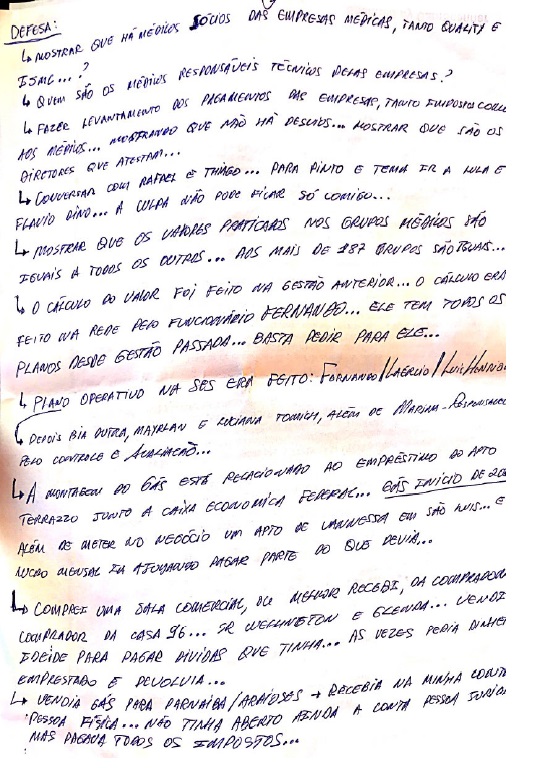 DEFESA:
↳ MOSTRAR QUE HÁ MÉDICOS SÓCIOS DAS EMPRESAS MÉDICAS, TANTO QUALITY E
ISMC...?
↳ QUEM SÃO OS MÉDICOS RESPONSÁVEIS TÉCNICOS PELAS EMPRESAS?
↳ FAZER LEVANTAMENTO DOS PAGAMENTOS DAS EMPRESAS, TANTO IMPOSTO COMO
AOS MÉDICOS... MOSTRANDO QUE NÃO HÁ DESVIOS... MOSTRAR QUE SÃO OS
DIRETORES QUE ATESTAM...
↳ CONVERSAR COM RAFAEL E THIAGO... PARA PINTO E TEMA IR A LULA E
FLAVIO DINO... A CULPA NÃO PODE FICAR SÓ COMIGO...
↳ MOSTRAR QUE OS VALORES PRATICADOS NOS GRUPOS MÉDICOS SÃO
IGUAIS A TODOS OS OUTROS... AOS MAIS DE 187 GRUPOS SÃO IGUAIS...
↳ O CÁLCULO DO VALOR FOI FEITO NA GESTÃO ANTERIOR... O CÁLCULO ERA
FEITO NA REDE PELO FUNCIONÁRIO FERNANDO... ELE TEM TODOS OS
PLANOS DESDE GESTÃO PASSADA... BASTA PEDIR PARA ELE...
↳ PLANO OPERATIVO NA SES ERA FEITO: FERNANDO/LAÉRCIO/LUIZ HENRIQ
↳ DEPOIS BIA DUTRA, MAYRLAN E LUCIANA TOMICH, ALÉM DE MARINA - RESPONSÁVE
PELO CONTROLE E AVALIAÇÃO...
↳ A MONTAGEM DO GÁS ESTÁ RELACIONADO AO EMPRÉSTIMO DO APTO
TERRAZZO JUNTO A CAIXA ECONOMICA FEDERAL... GÁS INÍCIO DE 20
ALÉM DE METER NO NEGÓCIO UM APTO DE VANNESSA EM SÃO LUIS... E
LUCRO MENSAL IA AJUDANDO PAGAR PARTE DO QUE DEVIA...
↳ COMPREI UMA SALA COMERCIAL, OU MELHOR RECEBI, DA COMPRADOR
COMPRADOR DA CASA 96... SR WELLINGTON E GLENDA... VENDI
IDEIDE PARA PAGAR DÍVIDAS QUE TINHA... AS VEZES PEDIA DINHE
EMPRESTADO E DEVOLVIA...
↳ VENDIA GÁS PARA PARNAÍBA/ARAIOSES → RECEBIA NA MINHA CONTA
PESSOA FÍSICA... NÃO TINHA ABERTO AINDA A CONTA PESSOA JURÍDI
MAS PAGAVA TODOS OS IMPOSTOS...